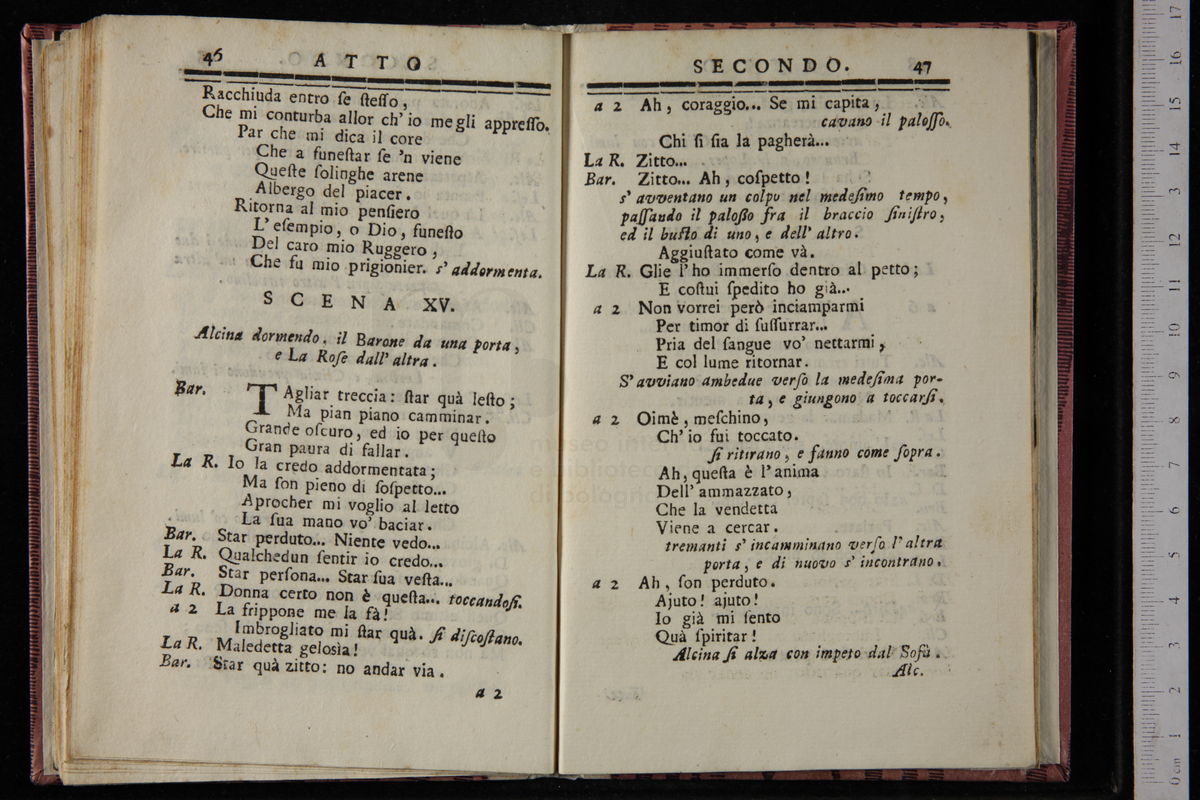 46 ATTO
Racchiuda entro ſe ſteſſo,
Che mi conturba allor ch' io megli appreſſo.
Par che mi dica il core
Che a funeſtar ſe 'n viene
Queſte ſolinghe arene
Albergo del piacer.
Ritorna al mio penſiero
L' eſempio, o Dio, funeſto
Del caro mio Ruggero,
Che fu mio prigionier. s' addormenta.
SCENA XV.
Alcina dormendo. il Barone da una porta,
e La Roſe dall' altra.
Bar. TAgliar treccia: ſtar quà leſto;
Ma pian piano camminar.
Grande oſcuro, ed io per queſto
Gran paura di fallar.
La R. Io la credo addormentata;
Ma ſon pieno di ſoſpetto...
Aprocher mi voglio al letto
La ſua mano vo' baciar.
Bar. Star perduto... Niente vedo...
La R. Qualchedun ſentir io credo...
Bar. Star perſona... Star ſua veſta...
La R. Donna certo non è queſta... toccandoſi.
a 2 La frippone me la fà!
Imbrogliato mi ſtar quà. ſi diſcoſtano.
La R. Maledetta gelosìa!
Bar. Star quà zitto: no andar via.
a 2
SECONDO. 47
a 2 Ah, coraggio... Se mi capita,
cavano il paloſſo.
Chi ſi ſia la pagherà...
La R. Zitto...
Bar. Zitto... Ah, coſpetto!
s' avventano un colpo nel medeſimo tempo,
paſſando il paloſſo fra il braccio ſiniſtro,
ed il buſto di uno, e dell' altro.
Aggiuſtato come và.
La R. Glie l' ho immerſo dentro al petto;
E coſtui ſpedito ho già...
a 2 Non vorrei però inciamparmi
Per timor di ſuſſurrar...
Pria del ſangue vo' nettarmi,
E col lume ritornar.
S' avviano ambedue verſo la medeſima por-
ta, e giungono a toccarſi.
a 2 Oimè, meſchino,
Ch' io fui toccato.
ſi ritirano, e fanno come ſopra.
Ah, queſta è l' anima
Dell' ammazzato,
Che la vendetta
Viene a cercar.
tremanti s' incamminano verſo l' altra
porta, e di nuovo s' incontrano.
a 2 Ah, ſon perduto.
Ajuto! ajuto!
Io già mi ſento
Quà ſpiritar!
Alcina ſi alza con impeto dal Sofà.
Alc.